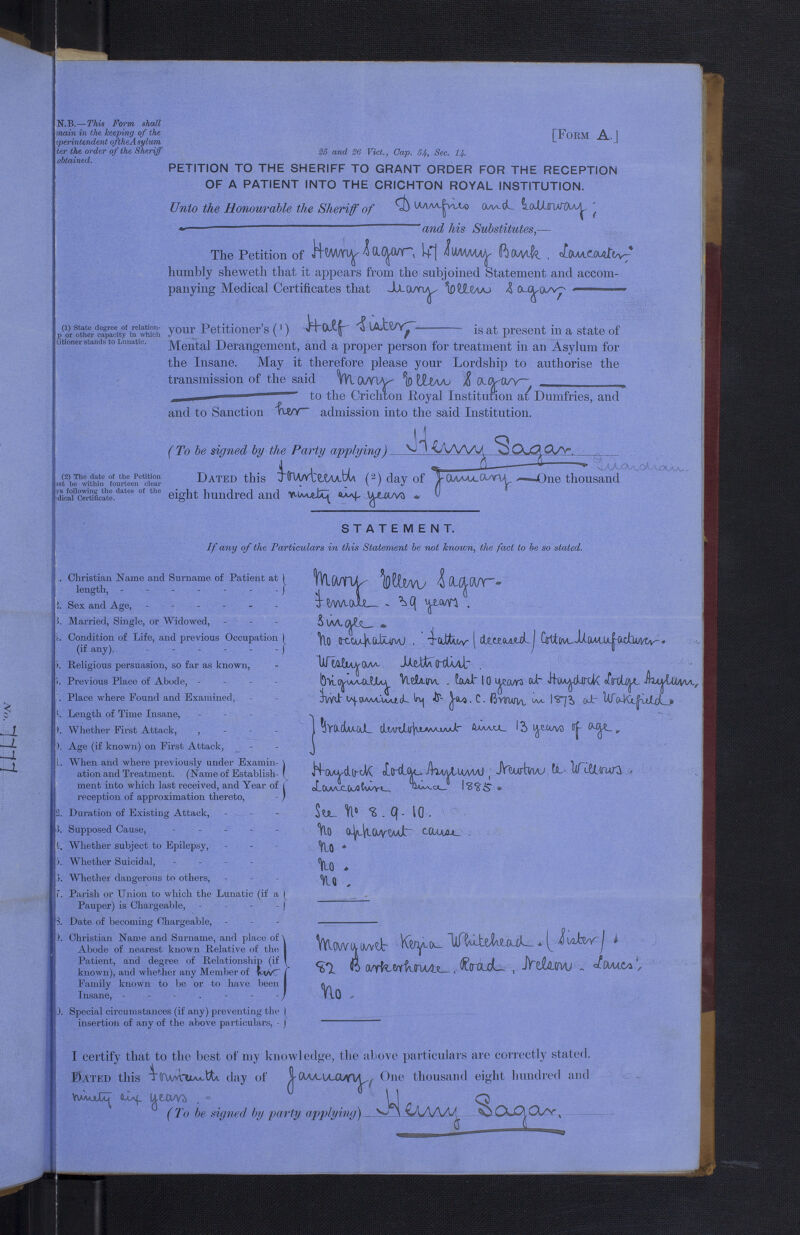 N.B.—This Form shall
main in the keeping of the
perintendent of the Asylum
ter the order of the Sheriff
obtained.
[FORM A.]
25 and 26 Vict., Cap. 54, Sec. 14.
PETITION TO THE SHERIFF TO GRANT ORDER FOR THE RECEPTION
OF A PATIENT INTO THE CRICHTON ROYAL INSTITUTION.
Unto the Honourable the Sheriff of Dumfries and Galloway;
and his Substitutes,—
The Petition of Henry Sagar, 47 Sunny Bank, Lancaster,
humbly sheweth that it appears from the subjoined Statement and accom-
panying Medical Certificates that Mary Ellen Sagar,
(1) State degree of relation-
p or other capacity in which
titioner stands to Lunatic.
your Petitioner's (1) Half Sister, is at present in a state of
Mental Derangement, and a proper person for treatment in an Asylum for
the Insane. May it therefore please your Lordship to authorise the
transmission of the said Mary Ellen Sagar,
to the Crichton Royal Institution at Dumfries, and
and to Sanction her admission into the said Institution.
(To be signed by the Party applying) Henry Sagar.
Guardian.
(2) The date of the Petition
st be within fourteen clear
ys following the dates of the
dical Certificate.
DATED this Fourteenth (2) day of January One thousand
eight hundred and ninety six years.
STATEMENT.
If any of the Particulars in this Statement be not known, the fact to be so stated.
. Christian Name and Surname of Patient at
length, - Mary Ellen Sagar.
2. Sex and Age, - Female - 39 years.
3. Married, Single, or Widowed, - Single.
4. Condition of Life, and previous Occupation
(if any). - No occupation. Father (deceased) Cotton Manufacturer.
5. Religious persuasion, so far as known, - Wesleyan Methodist.
6. Previous Place of Abode, - Originally Nelson. Last 10 years at Haydock Lodge Asylum,
. Place where Found and Examined, First examined by Dr Jas. C. Brown in 1873 at Wakefield.
8. Length of Time Insane, -
9. Whether First Attack, , - Gradual developement since 13 years of age.
0. Age (if known) on First Attack, -
1. When and where previously under Examin-
ation and Treatment. (Name of Establish-
ment into which last received, and Year of
reception of approximation thereto, - Haydock Lodge Asylum, Newton le Willows.
Lancashire since 1885.
2. Duration of Existing Attack, - See No 8. 9. 10.
3. Supposed Cause, - No apparent cause.
4. Whether subject to Epilepsy, - No.
5. Whether Suicidal, - No.
6. Whether dangerous to others, - No.
7. Parish or Union to which the Lunatic (if a
Pauper) is Chargeable, -
8. Date of becoming Chargeable, -
9. Christian Name and Surname, and place of
Abode of nearest known Relative of the
Patient, and degree of Relationship (if
known), and whether any Member of her
Family known to be or to have been
Insane, - Margaret Kezia Whitehead. (Sister)
82 Barkerhouse, Road, Nelson. Lancs,
No.
0. Special circumstances (if any) preventing the
insertion of any of the above particulars, -
I certify that to the best of my knowledge, the above particulars are correctly stated.
DATED this Fourteenth day of January, One thousand eight hundred and
ninety six years.
(To be signed by party applying) Henry Sagar.